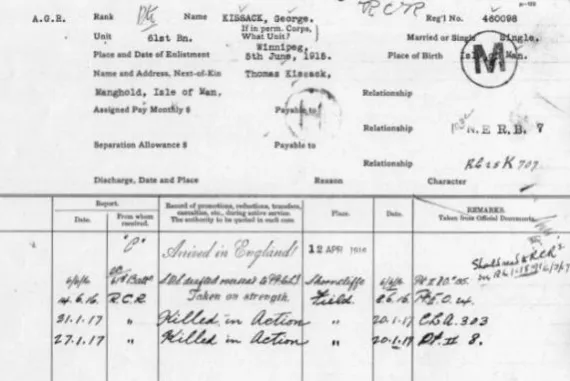 A.G.R. Rank Pte Name KISSACK, George. R C R Reg'l No. 460098
Unit 61st Bn. If in perm. Corps, What Unit? Married or Single Single.
Place and Date of Enlistment Winnipeg, 5th June, 1915. Place of Birth Isle of Man.
M
Name and Address, Next-of-Kin Thomas Kissack,
Manghold, Isle of Man. Relationship
Assigned Pay Monthly $ Payable to
Relationship N.E.R.B. 7
Separation Allowance $ Payable to
Relationship
Discharge, Date and Place Reason Character
Report. Record of promotions, reductions, transfers, casualties, etc., during active service. The authority to be quoted in each case. Place. Date. REMARKS. Taken from Official Documents.
Date. From whom received.
"P" Arrived in England 12 APR 1916
6/6/16 Shorncliffe 6/6/16
4.6.16 R.C.R. Taken on strength. Field 8.6.16
31.1.17 " Killed in Action " 20.1.17 C.L.A. 303
27.1.17 " Killed in Action " 20.1.17 Pt II 8.